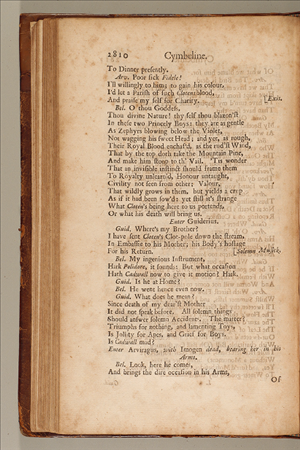 2810 Cymbeline.
To Dinner presently.
Arv. Poor sick Fidele!
I'll willingly to him; to gain his colour,
I'd let a Parish of such Clotens blood,
And praise my self for Charity. [Exit.
Bel. O thou Goddess,
Thou divine Nature! thy self thou blazon'st
In these two Princely Boys: they are as gentle
As Zephyrs blowing below the Violet,
Not wagging his sweet Head; and yet, as rough,
Their Royal Blood enchaf'd, as the rud'st Wind,
That by the top doth take the Mountain Pine,
And make him stoop to th' Vail. 'Tis wonder
That an invisible instinct should frame them
To Royalty unlearn'd, Honour untaught,
Civility not seen from other; Valour,
That wildly grows in them, but yields a crop
As if it had been sow'd: yet still it's strange
What Cloten's being here to us portends,
Or what his death will bring us.
Enter Guiderius.
Guid. Where's my Brother?
I have sent Cloten's Clot-pole down the stream,
In Embassie to his Mother; his Body's hostage
For his Return. [Solemn Musick.
Bel. My ingenious Instrument,
Hark Polidore, it sounds: But what occasion
Hath Cadwall now to give it motion? Hark.
Guid. Is he at Home?
Bel. He went hence even now.
Guid. What does he mean?
Since death of my dear'st Mother
It did not speak before. All solemn things
Should answer solemn Accidents. The matter?
Triumphs for nothing, and lamenting Toys,
Is Jollity for Apes, and Grief for Boys.
Is Cadwall mad?
Enter Arviragus, with Imogen dead, bearing her in his
Arms.
Bel. Look, here he comes,
And brings the dire occasion in his Arms,
Of